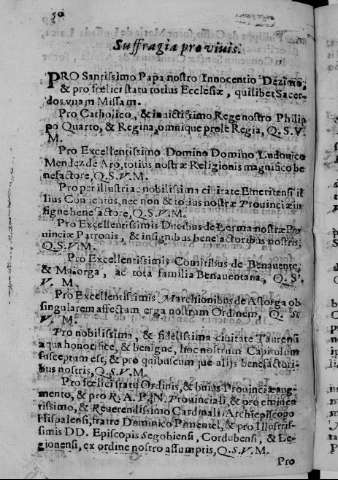 50
Suffragia pro vivis.
PRO Sanctissimo Papa nostro Innocentio Dezimo,
& pro fœlici statu totius Ecclesiæ, quilibet Sacer-
dos vnam Missam.
Pro Catholico, & inuictissimo Rege nostro Philip
po Quarto, & Regina, omnique prole Regia, Q. S. V.
M.
Pro Excellentissimo Domino Domino Ludouico
Mendez de Aro, totius nostræ Religionis magnifico be
nefactore, Q. S. V. M.
Pro perillustri & nobilissima ciuitate Emeritensi il
lius Conuentos, nec non & totius nostræ Prouinciæ in
signe benefactore, Q. S. V. M.
Pro Excellentissimis Ducibus de Lerma nostræ Pro
uinciæ Patronis, & insignibus benefactoribus nostris,
Q. S. V. M.
Pro Excellentissimis Comitibus de Benauente,
& Maiorga, ac tota familia Benauentana, Q. S.
V. M.
Pro Excellentissimis Marchionibus de Astorga ob
singularem affectum erga nostrum Ordinem, Q. S.
V. M.
Pro nobilissima, & fidelissima ciuitate Taurensi
a qua honorifice, & benigne, hinc nostrum Capitulum
susceptum est, & pro quibuscumque alijs benefactori-
bus nostris, Q. S. V. M.
Pro fœlici statu Ordinis, & huius Prouinciæ aug-
mento, & pro R. A. P. N. Prouinciali, & pro eminen
tissimo, & Reuerendissimo Cardinali Archiepiscopo
Hispalensi, fratre Dominico Pimentel, & pro Illustris-
simis DD. Episcopis Segobiensi, Cordubensi, & Le-
gionensi, ex ordine nostro assumptis, Q. S. V. M.
Pro